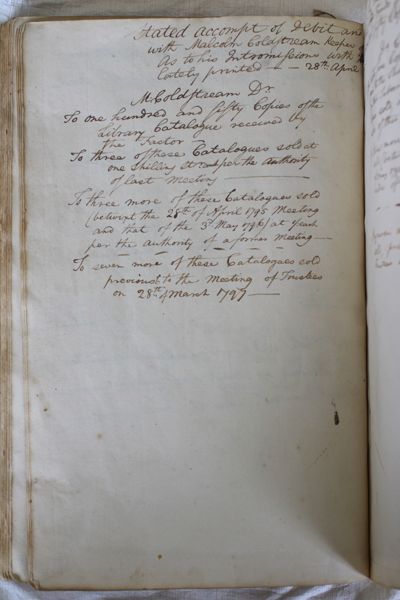 Stated accompt of Debit an
with Malcolm Coldstream Keeper
As to his Intromissions with
lately printed - - 28th April
M. Coldstream Dr.
To one hundred and fifty Copies of the
Library Catalogue received by
the Factor
To three of these Catalogues sold at
one Shilling Ster per the authority
of last Meeting
To three more of these Catalogues sold
(betwixt the 28th of April 1795 Meeting
and that of the 3d May 1796) at
per the authority of a former Meeting
To seven more of these Catalogues sold
previous to the Meeting of Trustees
on 28th March 1797